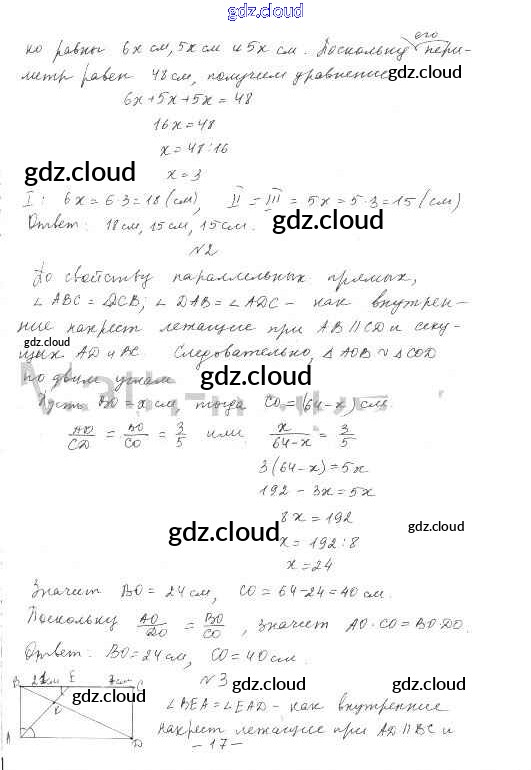 gdz.cloud
ко равны 6x см, 5x см и 5x см. Поскольку его пери-
метр равен 48 см, получим уравнение
gdz.cloud
6x+5x+5x=48
16x=48
x=48:16
gdz.cloud
gdz.cloud
x=3
I: 6x=6·3=18 (см), II = III = 5x=5·3=15 (см)
Ответ: 18 см, 15 см, 15 см.
gdz.cloud
№2
По свойству параллельных прямых,
∠ABC = ∠DCB; ∠DAB = ∠ADC - как внутрен-
gdz.cloud
ние накрест лежащие при AB∥CD и секу-
gdz.cloud
щих AD и BC. Следовательно, △AOB ∾ △COD
по двум углам
gdz.cloud
Пусть BO = x см, тогда CO = (64-x) см.
AO/CD = BO/CO = 3/5 или x/64-x = 3/5
3(64-x)=5x
192-3x=5x
8x=192
gdz.cloud
gdz.cloud
x=192:8
x=24
Значит BO=24 см, CO=64-24=40 см.
gdz.cloud
gdz.cloud
Поскольку AO/DO = BO/CO, значит AO·CO=BO·DO.
Ответ: BO=24 см, CO=40 см.
gdz.cloud
№3
B 21см E 7см C
gdz.cloud
K
A
D
∠BEA=∠EAD - как внутренние
gdz.cloud
накрест лежащие при AD∥BC и
gdz.cloud
-17-